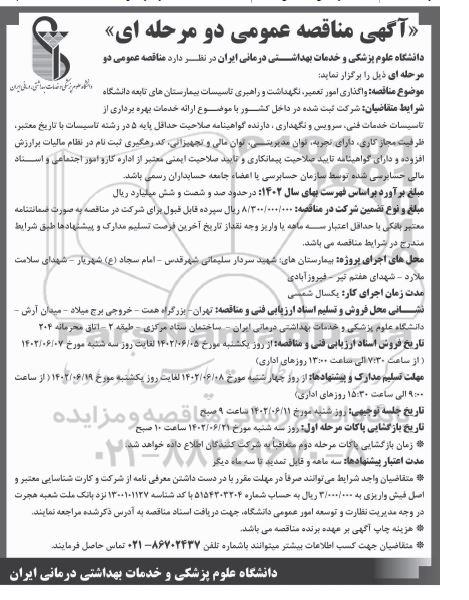 «آگهی مناقصه عمومی دو مرحله ای»
دانشگاه علوم پزشکی و خدمات بهداشتی درمانی ایران در نظر دارد مناقصه عمومی دو
مرحله ای ذیل را برگزار نماید:
موضوع مناقصه: واگذاری امور تعمیر، نگهداشت و راهبری تاسیسات بیمارستان های تابعه دانشگاه
شرایط متقاضیان: شرکت ثبت شده در داخل کشور با موضوع ارائه خدمات بهره برداری از
تاسیسات خدمات فنی، سرویس و نگهداری، دارنده گواهینامه صلاحیت حداقل پایه ۵ در رشته تاسیسات با تاریخ معتبر،
ظرفیت مجاز کاری، دارای تجربه، توان مدیریتی، توان مالی و تجهیزاتی، کد رهگیری ثبت نام در نظام مالیات برارزش
افزوده و دارای گواهینامه تایید صلاحیت پیمانکاری و تایید صلاحیت ایمنی معتبر از اداره کار و امور اجتماعی و اسناد
مالی حسابرسی شده توسط سازمان حسابرسی یا اعضاء جامعه حسابداران رسمی باشد.
مبلغ برآورد براساس فهرست بهای سال ۱۴۰۲: در حدود صد و شصت و شش میلیارد ریال
مبلغ و نوع تضمین شرکت در مناقصه: ۸/۳۰۰/۰۰۰/۰۰۰ ریال سپرده قابل قبول برای شرکت در مناقصه به صورت ضمانتنامه
معتبر بانکی با حداقل اعتبار سه ماهه یا واریز وجه نقداز تاریخ آخرین فرصت تسلیم مدارک و پیشنهادها طبق شرایط
مندرج در شرایط مناقصه می باشد.
محل های اجرای پروژه: بیمارستان های: شهید سردار سلیمانی شهرقدس - امام سجاد (ع) شهریار - شهدای سلامت
ملارد - شهدای هفتم تیر - فیروزآبادی
مدت زمان اجرای کار: یکسال شمسی
نشانی محل فروش و تسلیم اسناد ارزیابی فنی و مناقصه: تهران- بزرگراه همت - خروجی برج میلاد - میدان آرش -
دانشگاه علوم پزشکی و خدمات بهداشتی درمانی ایران - ساختمان ستاد مرکزی - طبقه ۲ - اتاق محرمانه ۲۰۴
تاریخ فروش اسناد ارزیابی فنی و مناقصه: از روز یکشنبه مورخ ۱۴۰۲/۰۶/۰۵ لغایت روز سه شنبه مورخ ۱۴۰۲/۰۶/۰۷
( از ساعت ۷:۳۰ الی ساعت ۱۳:۰۰ روزهای اداری)
مهلت تسلیم مدارک و پیشنهادها: از روز چهار شنبه مورخ ۱۴۰۲/۰۶/۰۸ لغایت روز یکشنبه مورخ ۱۴۰۲/۰۶/۱۹ ( از ساعت
۹:۰۰ الی ساعت ۱۵:۳۰ روزهای اداری)
تاریخ جلسه توجیهی: روز شنبه مورخ ۱۴۰۲/۰۶/۱۱ ساعت ۹ صبح
تاریخ بازگشایی پاکات مرحله اول: روز سه شنبه مورخ ۱۴۰۲/۰۶/۲۱ ساعت ۱۰ صبح
* زمان بازگشایی پاکات مرحله دوم متعاقباً به شرکت کنندگان اطلاع داده خواهد شد.
مدت اعتبار پیشنهادها: سه ماهه و قابل تمدید تا سه ماه دیگر
* متقاضیان واجد شرایط می‌توانند صرفاً در مهلت مقرر با در دست داشتن معرفی نامه از شرکت و کارت شناسایی معتبر و
اصل فیش واریزی به مبلغ ۳/۰۰۰/۰۰۰ ریال به حساب شماره ۵۱۵۴۳۰۳۲۰۴ با کد شناسه ۱۳۰۰۱۰۱۱۲۷ نزد بانک ملت شعبه هجرت
در وجه مدیریت نظارت و توسعه امور عمومی دانشگاه، جهت دریافت اسناد مناقصه به آدرس ذکرشده مراجعه نمایند.
* هزینه چاپ آگهی بر عهده برنده مناقصه می باشد.
* متقاضیان جهت کسب اطلاعات بیشتر میتوانند باشماره تلفن ۸۶۷۰۲۴۳۷-۰۲۱ تماس حاصل فرمایند.
دانشگاه علوم پزشکی و خدمات بهداشتی درمانی ایران